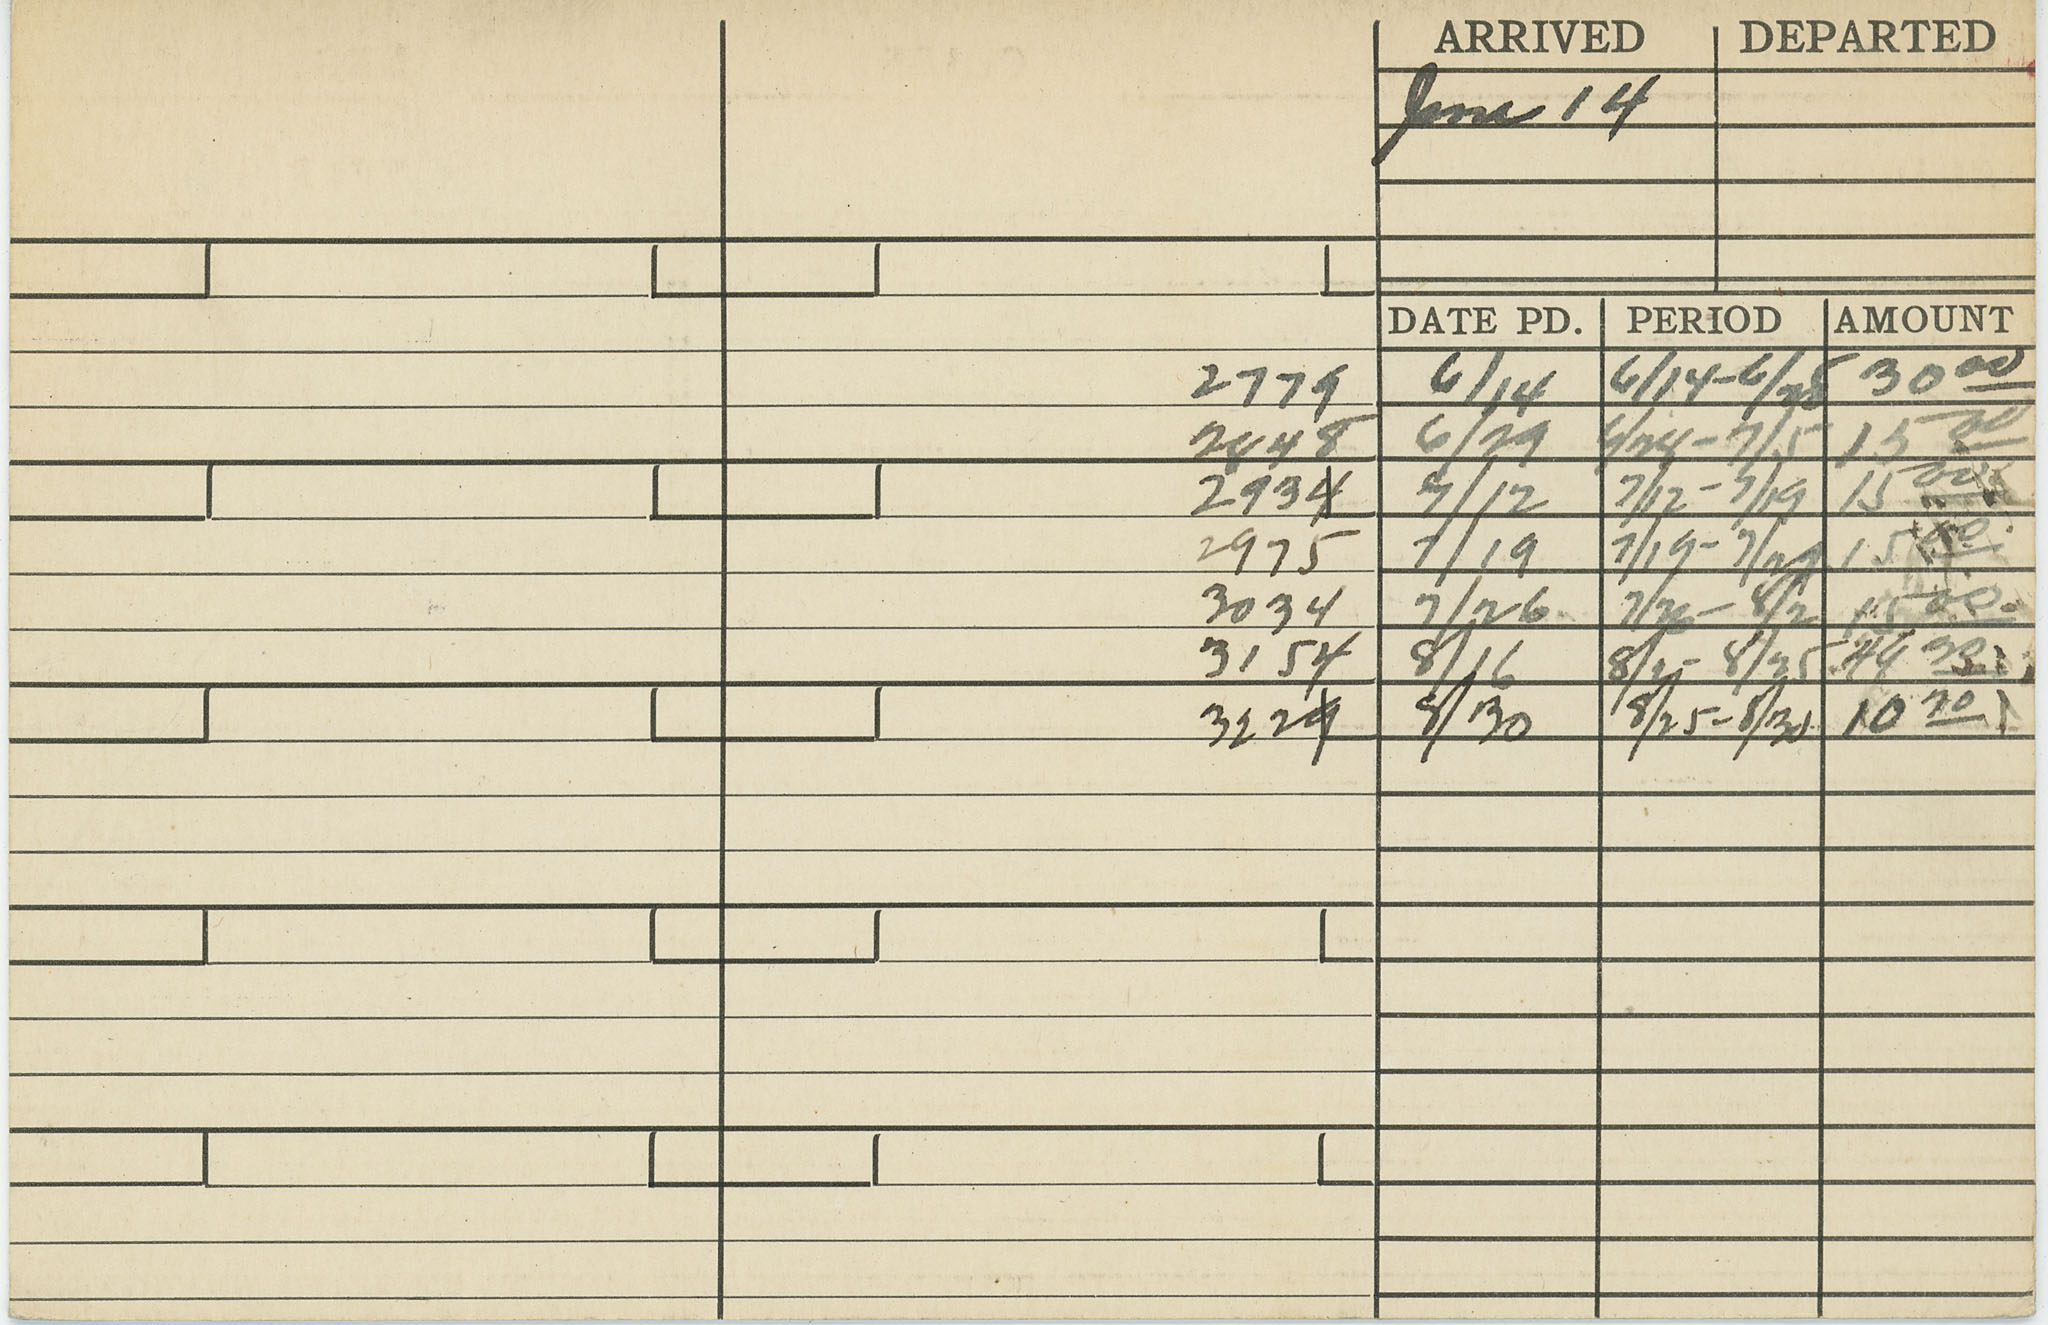 ARRIVED DEPARTED
June 14
DATE PD. PERIOD AMOUNT
2779 6/14 6/14-6/28 30 00
2848 6/29 6/28-7/5 15 00
2934 7/12 7/12-7/19 15 00
2975 7/19 7/19-7/29 15 00
3034 7/26 7/26-8/2 15 00
3154 8/16 8/2-8/25
3229 8/30 8/25-8/30 10 70